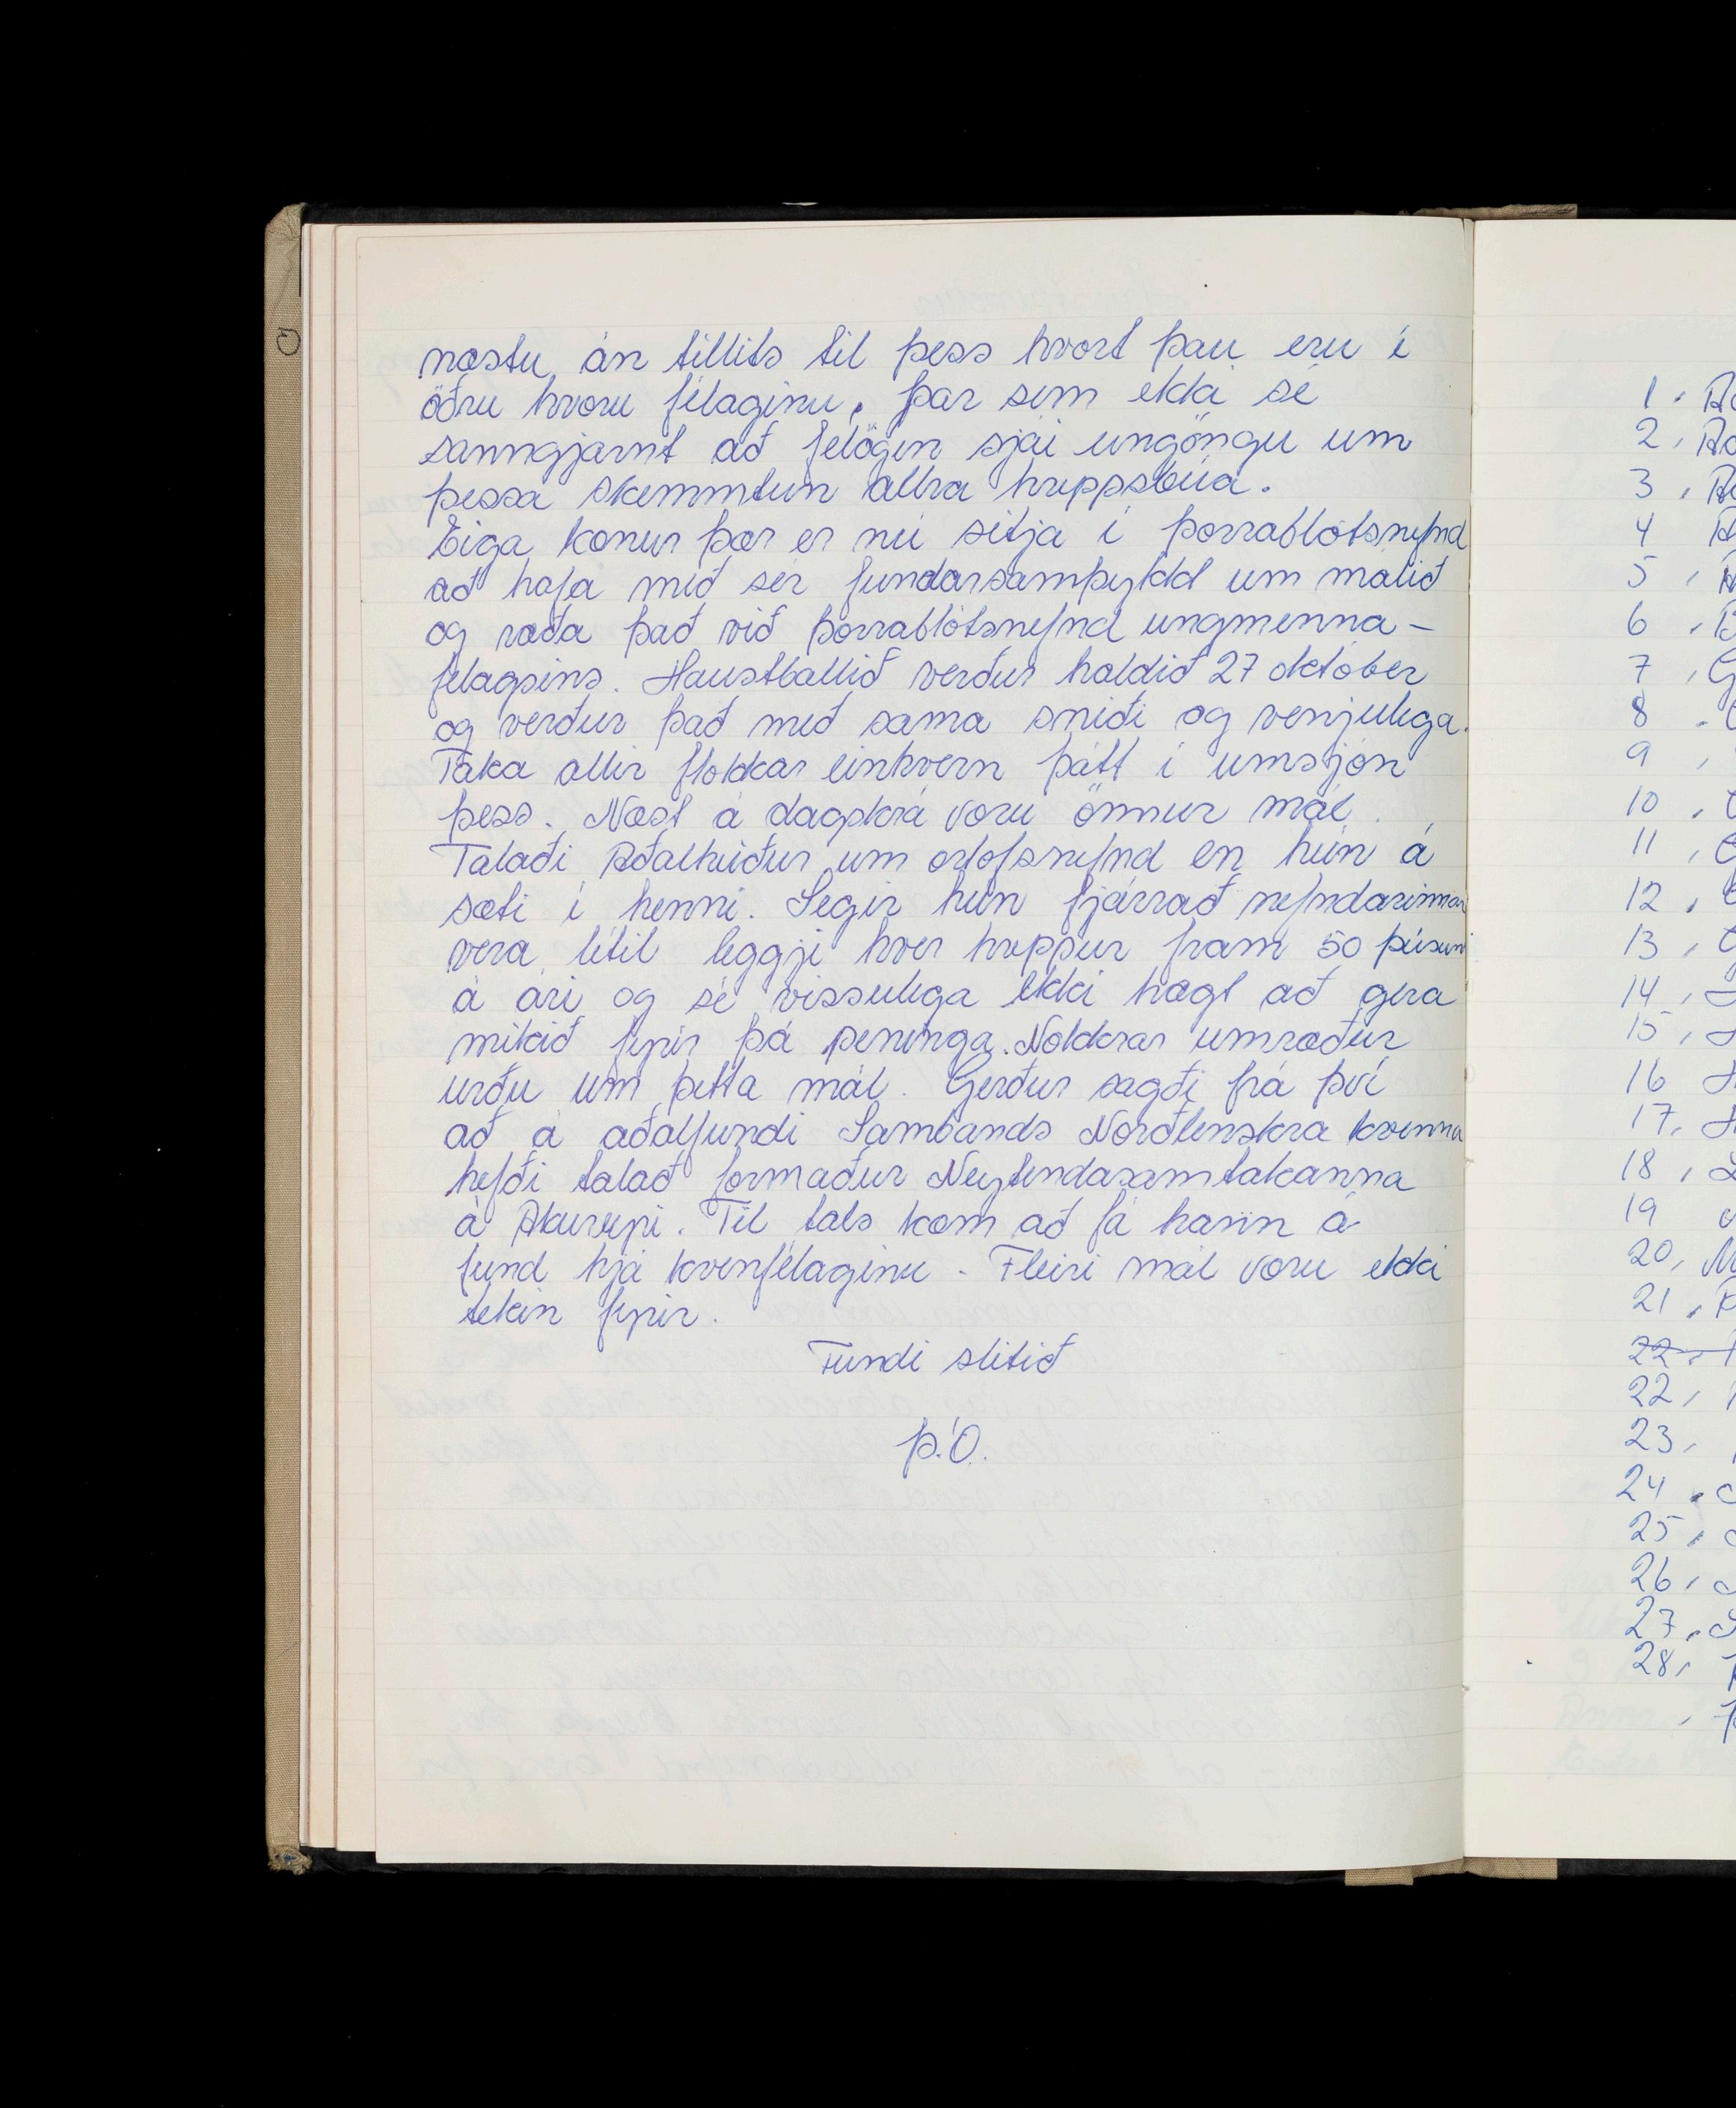 næstu án tillits til þess hvort þau eru í
öðru hvoru félaginu, þar sem ekki sé
sanngjarnt að félögin sjái ungöngu um
þessa skemmtun allra hreppsbúa.
Eiga konur þær er nú sitja í þorrablótsnefnd
að hafa með sér fundarsamþykkt um málið
og ræða það við þorrablótsnefnd ungmenna-
félagsins. Haustballið verður haldið 27 október
og verður það með sama sniði og venjulega.
Taka allir flokkar einhvern þátt í umsjón
þess. Næst á dagskrá voru önnur mál.
Talaði Aðalheiður um orlofsnefnd en hún á
sæti í henni. Segir hún fjárráð nefndarinnar
vera lítil leggji hver hreppur fram 50 þúsund
á ári og sé vissulega ekki hægt að gera
mikið fyrir þá peninga. Nokkrar umræður
urðu um þetta mál. Gerður sagði frá því
að á aðalfundi Sambands Norðlenskra kvenna
hefði talað formaður Neytendasamtakanna
á Akureyri. Til tals kom að fá hann á
fund hjá kvenfélaginu - Fleiri mál voru ekki
tekin fyrir.
Fundi slitið
Þ.Ó.
1.
2,
3,
4
5,
6,
7,
8.
9,
10.
11,
12,
13,
14,
15,
16
17,
18,
19
20,
21,
22,
22,
23,
24.
25,
26,
27.
28,